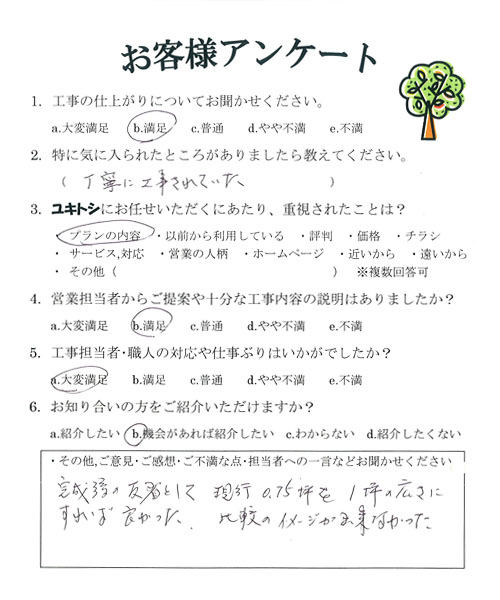 お客様アンケート
1. 工事の仕上がりについてお聞かせください。
a.大変満足 b.満足 c.普通 d.やや不満 e.不満
2. 特に気に入られたところがありましたら教えてください。
( 丁寧に工事されていた )
3. ユキトシにお任せいただくにあたり、重視されたことは？
・プランの内容 ・以前から利用している ・評判 ・価格 ・チラシ
・サービス,対応 ・営業の人柄 ・ホームページ ・近いから ・遠いから
・その他 ( ) ※複数回答可
4. 営業担当者からご提案や十分な工事内容の説明はありましたか？
a.大変満足 b.満足 c.普通 d.やや不満 e.不満
5. 工事担当者・職人の対応や仕事ぶりはいかがでしたか？
a.大変満足 b.満足 c.普通 d.やや不満 e.不満
6. お知り合いの方をご紹介いただけますか？
a.紹介したい b.機会があれば紹介したい c.わからない d.紹介したくない
・その他,ご意見・ご感想・ご不満な点・担当者への一言などお聞かせください
完成後の反省として 現行0.75坪を1坪の広さに
すれば良かった。 比較のイメージが出来なかった